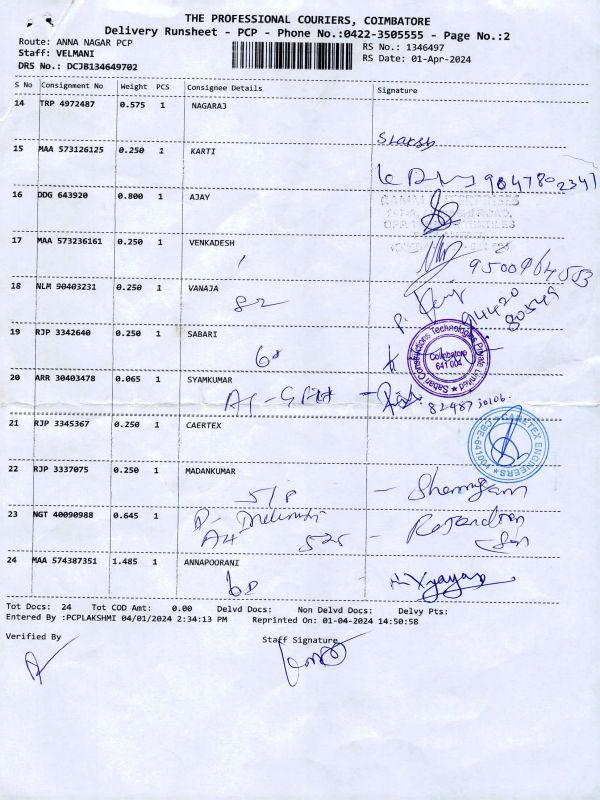 THE PROFESSIONAL COURIERS, COIMBATORE
Delivery Runsheet - PCP - Phone No.:0422-3505555 - Page No.:2
Route: ANNA NAGAR PCP
RS No.: 1346497
Staff: VELMANI
RS Date: 01-Apr-2024
DRS No.: DCJB134649702
S No Consignment No Weight PCS Consignee Details Signature
14 TRP 4972487 0.575 1 NAGARAJ
15 MAA 573126125 0.250 1 KARTI
9847802347
16 DDG 643920 0.800 1 AJAY
17 MAA 573236161 0.250 1 VENKADESH
9500964553
18 NLM 90403231 0.250 1 VANAJA
82
94420
80549
19 RJP 3342640 0.250 1 SABARI
Sabari Constructions Technologies Private Limited
Coimbatore
641 004
20 ARR 30403478 0.065 1 SYAMKUMAR
8248730106.
21 RJP 3345367 0.250 1 CAERTEX
CAERTEX ENGINEERS
CBE-641004
22 RJP 3337075 0.250 1 MADANKUMAR
S/P - Shanmugam
23 NGT 40090988 0.645 1
A4 525 - Rajendran
24 MAA 574387351 1.485 1 ANNAPOORANI
Tot Docs: 24 Tot COD Amt: 0.00 Delvd Docs: Non Delvd Docs: Delvy Pts:
Entered By :PCPLAKSHMI 04/01/2024 2:34:13 PM Reprinted On: 01-04-2024 14:50:58
Verified By Staff Signature